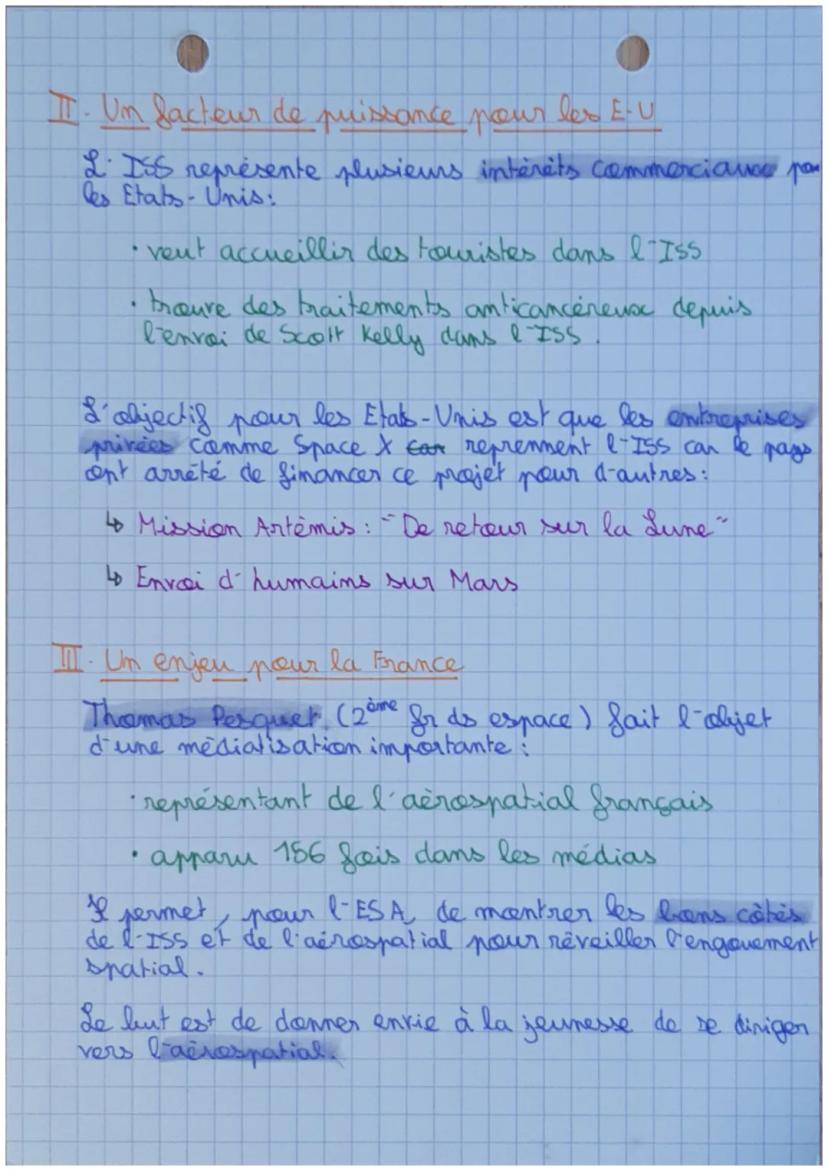 II. Un facteur de puissance pour les E-U
L'ISS représente plusieurs intérêts commerciaux
les États-Unis:
• veut accueillir des touristes dans l'ISS
• trouve des traitements anticancéreux depuis
l'envoi de Scott Kelly dans l'ISS.
L'objectif pour les États-Unis est que les entreprises
privées comme Space X reprennent l'ISS car le pays
ont arrêté de financer ce projet pour d'autres:
↳ Mission Artémis: "De retour sur la Lune"
↳ Envoi d'humains sur Mars
III. Un enjeu pour la France
Thomas Pesquet (2ème fr ds espace) fait l'objet
d'une médiatisation importante:
• représentant de l'aérospatial français
• apparu 156 fois dans les médias
Il permet, pour l'ESA, de montrer les bons côtés
de l'ISS et de l'aérospatial pour réveiller l'engouement
spatial.
Le but est de donner envie à la jeunesse de se diriger
vers l'aérospatial.